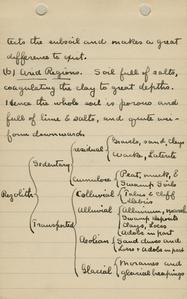 tuts the subsoil and makes a great
difference to yut.
(b) Arid Regions. Soil full of salts,
coagulating the clay to great depths.
Hence the whole soil is porous and
full of lime & salts, and quite uni-
form downwards.
Regolith
Sedentary
residual
Gravels, sand, clays
Wacke, Laterite
Cumulose
Peat, muck, &
Swamp Soils
Transported
Colluvial
Talus & cliff
debris
Alluvial
Alluvium, marine
Swamp deposits
clays, Loess
Adobe in part
Aeolian
Sand dunes and
Loess & Adobe in part
Glacial
Moraines and
glacial heapings